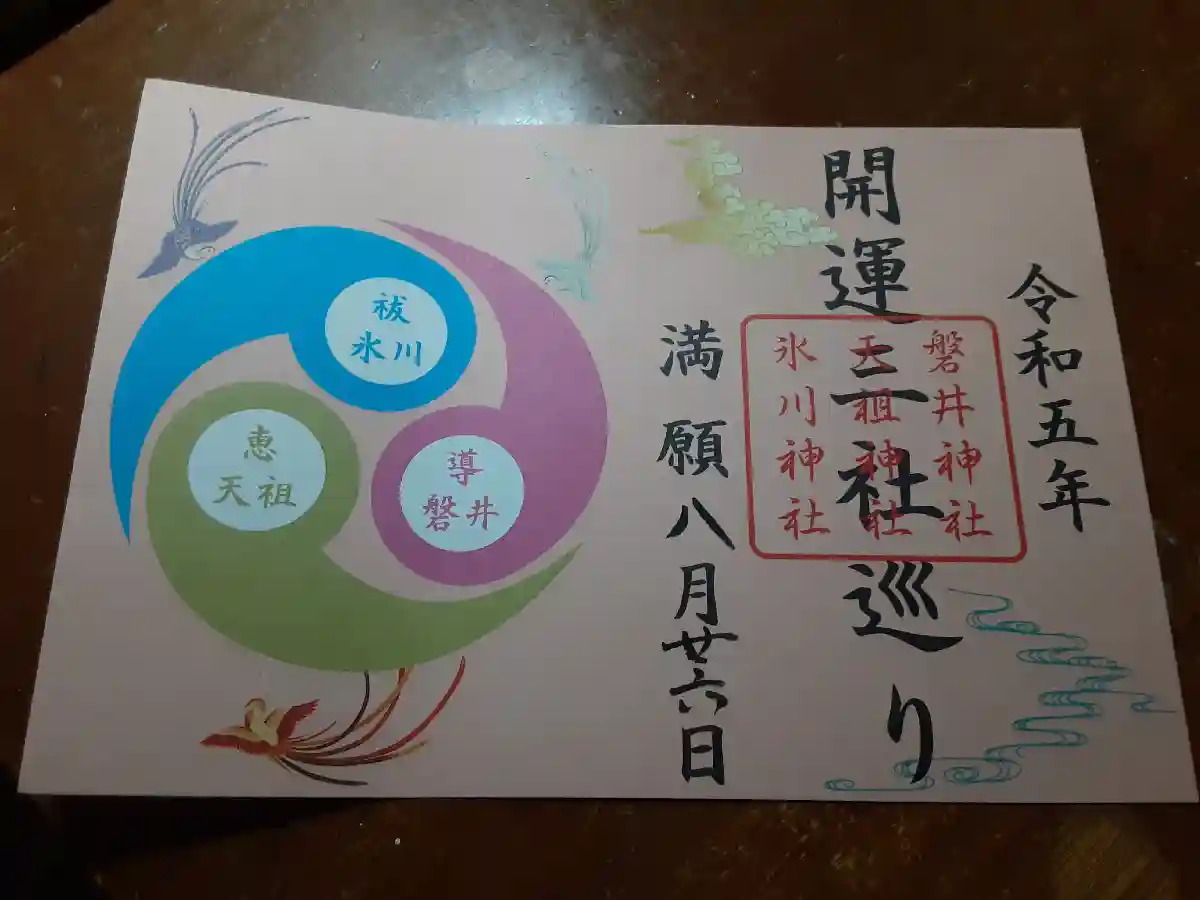 令和五年
開運三社巡り
磐井神社
天祖神社
氷川神社
満願八月廿六日
祓
氷川
導
磐井
恵
天祖